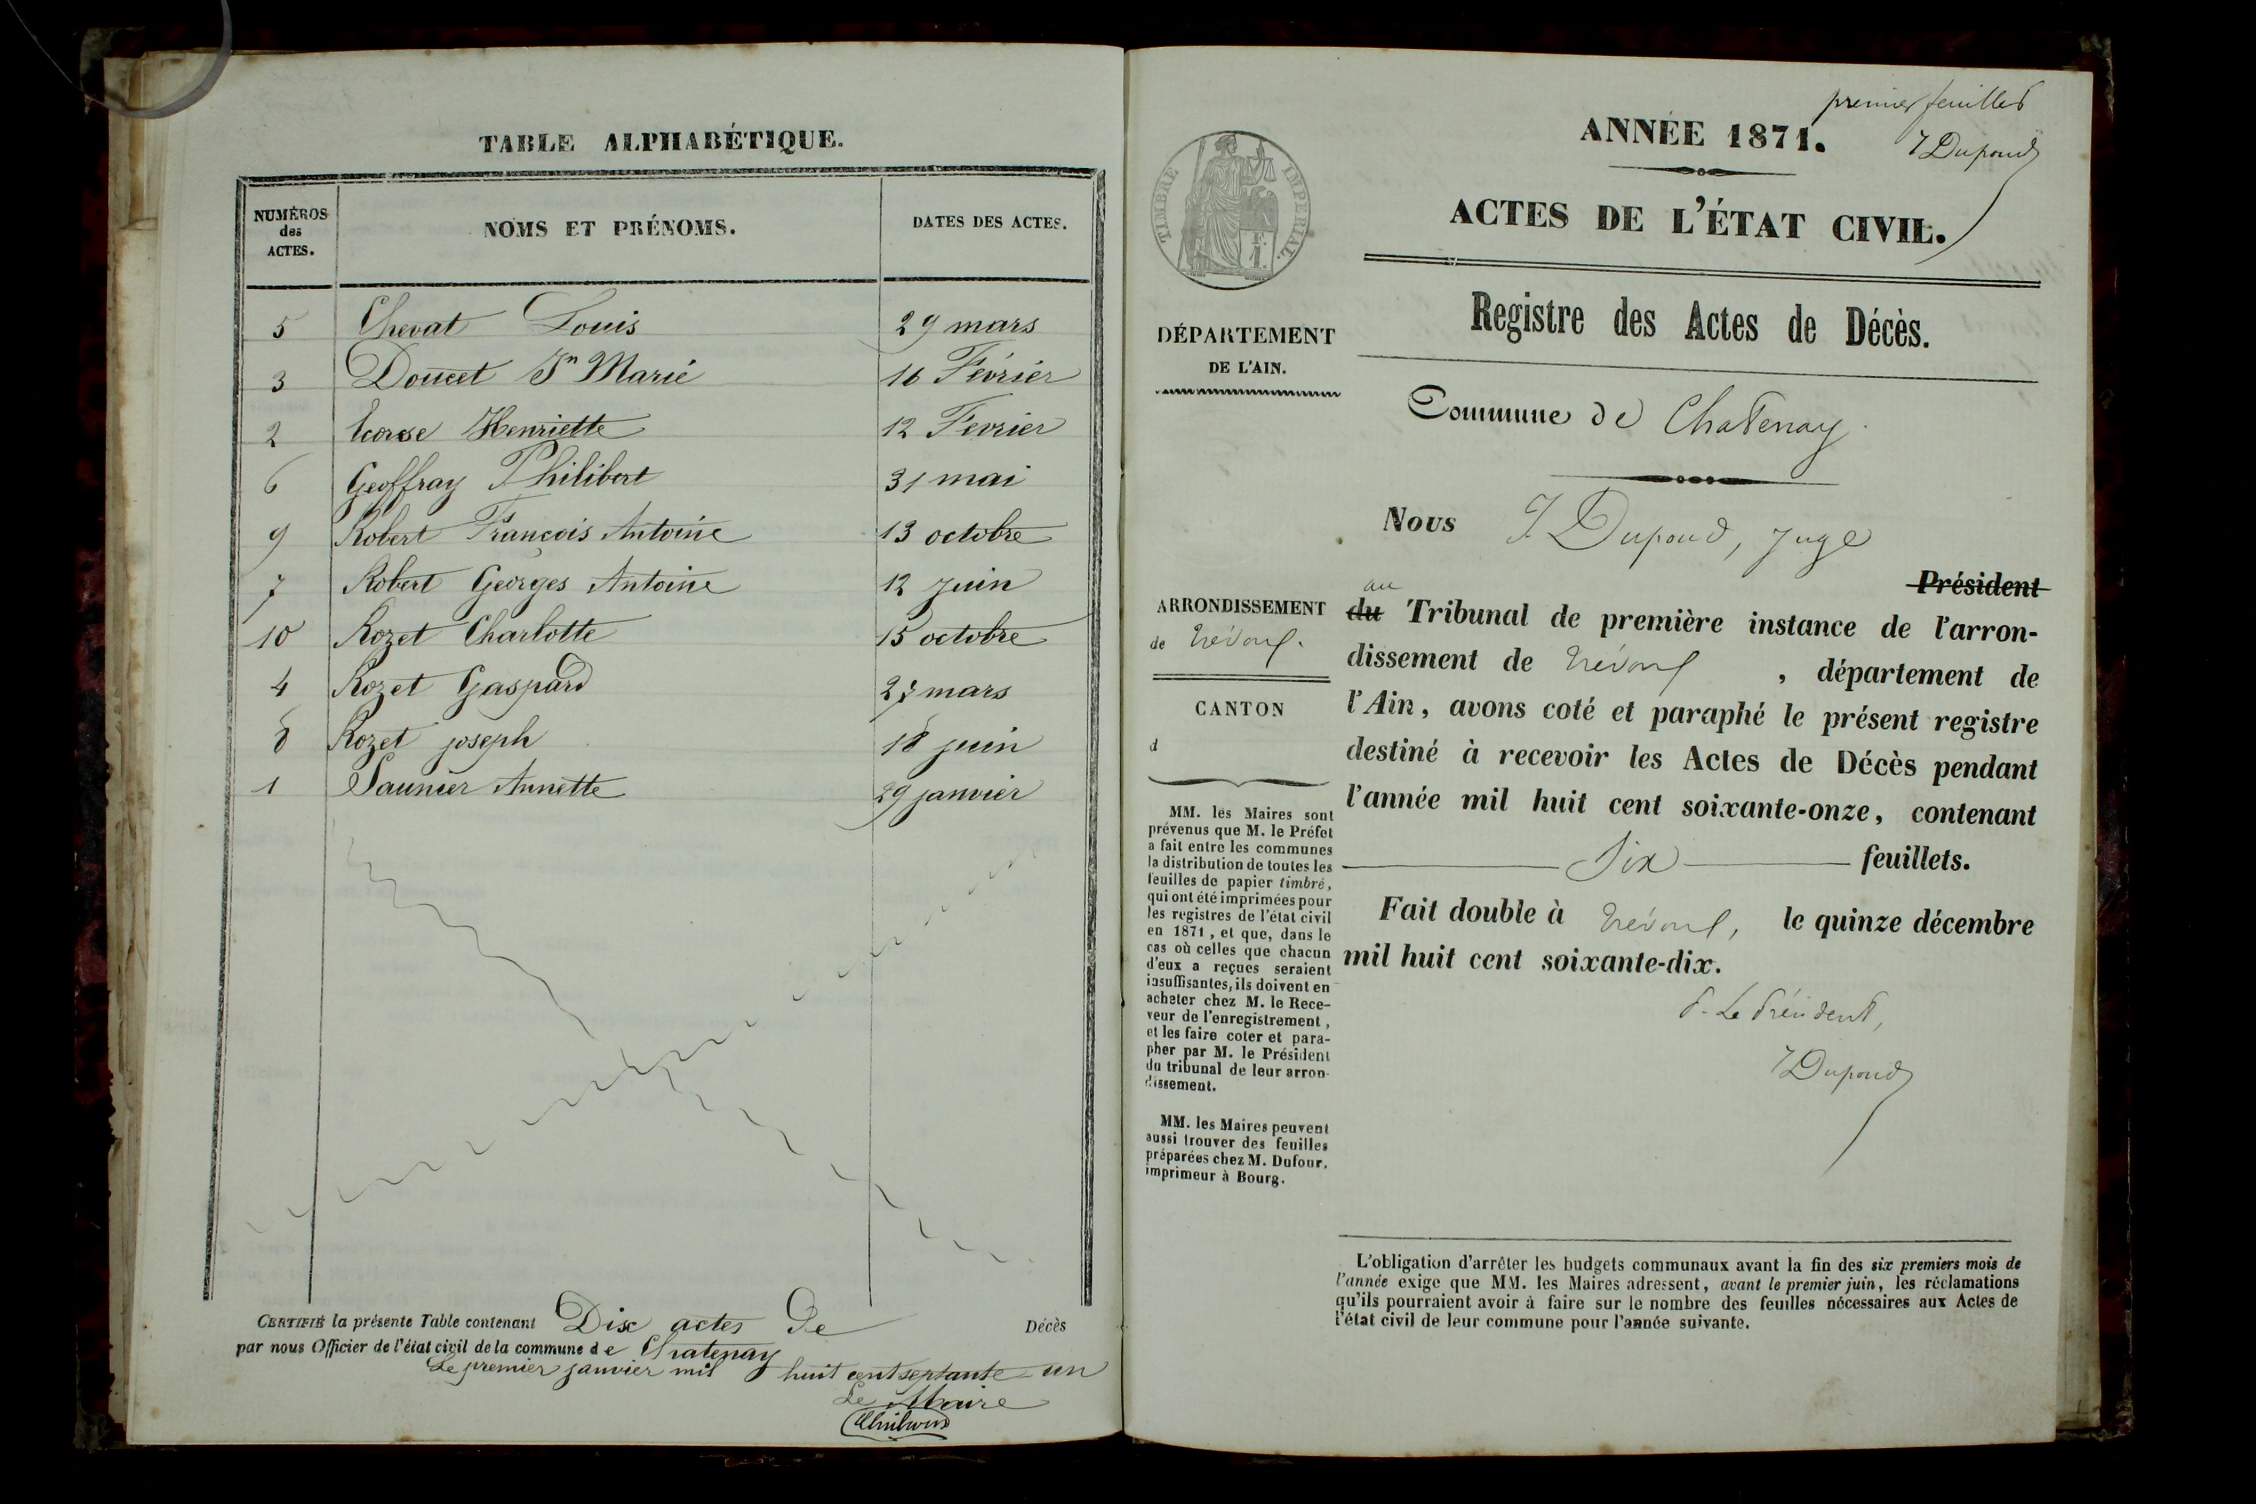 TABLE ALPHABÉTIQUE.
NUMÉROS des ACTES.
NOMS ET PRÉNOMS.
DATES DES ACTES.
5 Chevat Louis 29 mars
3 Doucet Jn Marie 16 Février
2 Ecorse Henriette 12 Fevrier
6 Geoffray Philibert 31 mai
9 Robert François Antoine 13 octobre
7 Robert Georges Antoine 12 juin
10 Rozet Charlotte 15 octobre
4 Rozet Gaspard mars
8 Rozet joseph 18 juin
1 Saunier Annette 29 janvier
CERTIFIÉ la présente Table contenant Dix actes De Décès
par nous Officier de l'état civil de la commune de Chatenay
Le premier janvier mil huit cent septante un
Le Maire
premier feuillet
J Dupond
ANNÉE 1871.
ACTES DE L'ÉTAT CIVIL.
TIMBRE IMPÉRIAL.
F.
1.
Registre des Actes de Décès.
DÉPARTEMENT
DE L'AIN.
Commune de Chatenay.
Nous J. Dupond, juge
Président
au
du Tribunal de première instance de l'arron-
dissement de Trévoux, département de
l'Ain, avons coté et paraphé le présent registre
destiné à recevoir les Actes de Décès pendant
l'année mil huit cent soixante-onze, contenant
Six feuillets.
Fait double à Trévoux, le quinze décembre
mil huit cent soixante-dix.
P. Le Président,
J Dupond
ARRONDISSEMENT
de Trévoux.
CANTON
d
MM. les Maires sont
prévenus que M. le Préfet
a fait entre les communes
la distribution de toutes les
feuilles de papier timbré,
qui ont été imprimées pour
les registres de l'état civil
en 1871, et que, dans le
cas où celles que chacun
d'eux a reçues seraient
insuffisantes, ils doivent en
acheter chez M. le Rece-
veur de l'enregistrement,
et les faire coter et para-
pher par M. le Président
du tribunal de leur arron-
dissement.
MM. les Maires peuvent
aussi trouver des feuilles
préparées chez M. Dufour,
imprimeur à Bourg.
L'obligation d'arrêter les budgets communaux avant la fin des six premiers mois de
l'année exige que MM. les Maires adressent, avant le premier juin, les réclamations
qu'ils pourraient avoir à faire sur le nombre des feuilles nécessaires aux Actes de
l'état civil de leur commune pour l'année suivante.